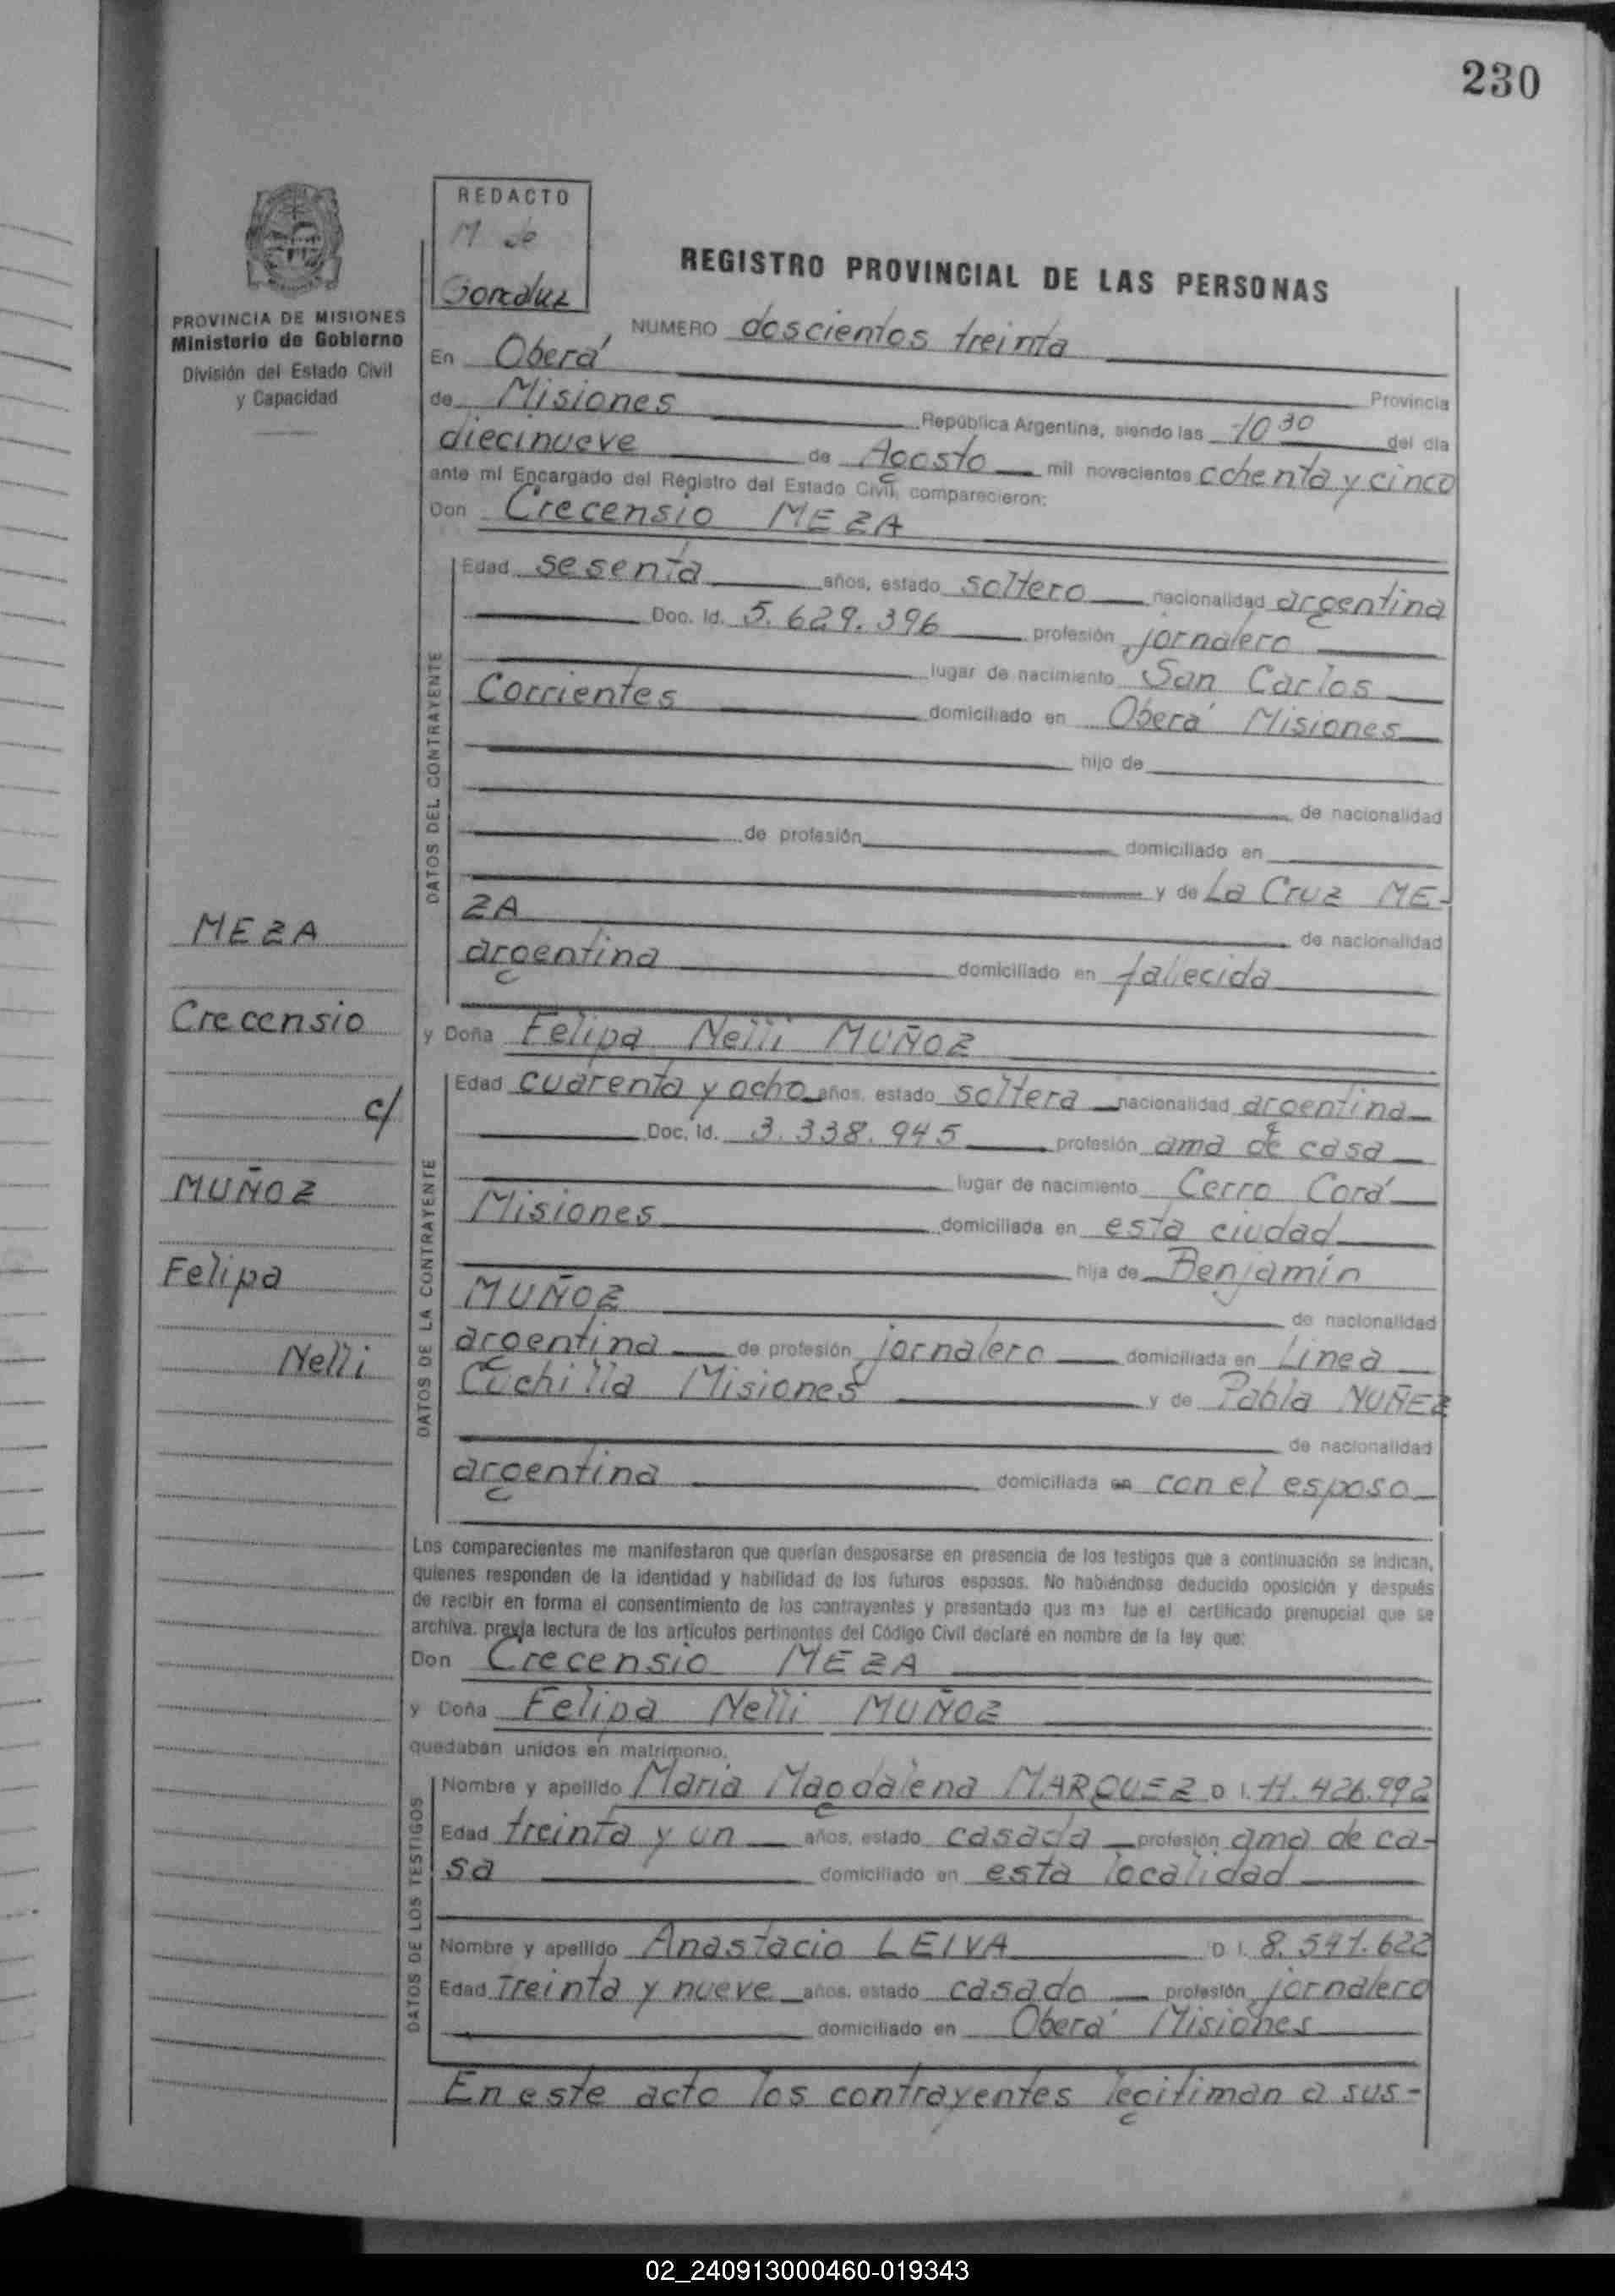 230
REDACTO
M de
Gonzalez
REGISTRO PROVINCIAL DE LAS PERSONAS
PROVINCIA DE MISIONES
Ministerio de Gobierno
División del Estado Civil
y Capacidad
NUMERO doscientos treinta
En Oberá
Provincia
de Misiones República Argentina, siendo las 10 30 del día
diecinueve de Agosto mil novecientos ochenta y cinco
ante mi Encargado del Registro del Estado Civil, comparecieron:
Don Crecensio MEZA
DATOS DEL CONTRAYENTE
Edad sesenta años, estado soltero nacionalidad argentina
Doc. Id. 5.629.396 profesión jornalero
lugar de nacimiento San Carlos
Corrientes domiciliado en Oberá Misiones
hijo de
de nacionalidad
de profesión domiciliado en
y de La Cruz ME-
ZA de nacionalidad
argentina domiciliado en fallecida
MEZA
Crecensio
c/
MUÑOZ
Felipa
Nelli
y Doña Felipa Nelli MUÑOZ
DATOS DE LA CONTRAYENTE
Edad cuarenta y ocho años, estado soltera nacionalidad argentina
Doc. Id. 3.338.945 profesión ama de casa
lugar de nacimiento Cerro Corá
Misiones domiciliada en esta ciudad
hija de Benjamín
MUÑOZ de nacionalidad
argentina de profesión jornalero domiciliada en Linea
Cuchilla Misiones y de Pabla NUÑEZ
de nacionalidad
argentina domiciliada en con el esposo
Los comparecientes me manifestaron que querían desposarse en presencia de los testigos que a continuación se indican,
quienes responden de la identidad y habilidad de los futuros esposos. No habiéndose deducido oposición y después
de recibir en forma el consentimiento de los contrayentes y presentado que me fue el certificado prenupcial que se
archiva, previa lectura de los artículos pertinentes del Código Civil declaré en nombre de la ley que:
Don Crecensio MEZA
y Doña Felipa Nelli MUÑOZ
quedaban unidos en matrimonio.
DATOS DE LOS TESTIGOS
Nombre y apellido Maria Magdalena MARQUEZ D I. 11.426.992
Edad treinta y un años, estado casada profesión ama de ca-
sa domiciliado en esta localidad
Nombre y apellido Anastacio LEIVA D. I. 8.541.622
Edad treinta y nueve años, estado casado profesión jornalero
domiciliado en Oberá Misiones
En este acto los contrayentes legitiman a sus-
02_240913000460-019343